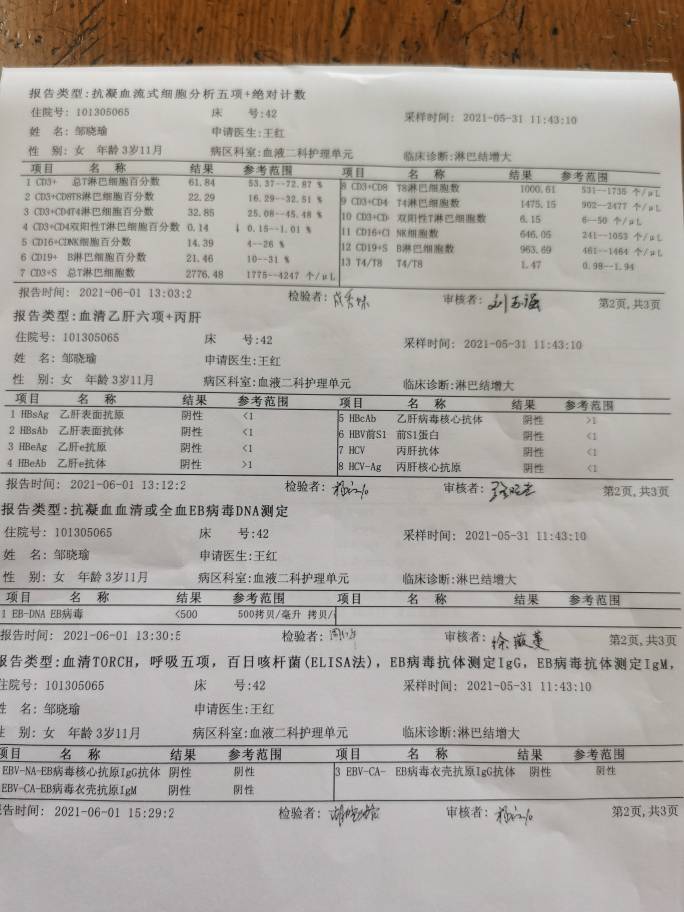 报告类型:抗凝血流式细胞分析五项+绝对计数
住院号: 101305065 床 号:42 采样时间: 2021-05-31 11:43:10
姓 名: 邹晓瑜 申请医生:王红
性 别: 女 年龄 3岁11月 病区科室:血液二科护理单元 临床诊断:淋巴结增大
项目 名 称 结果 参考范围 项目 名 称 结果 参考范围
1 CD3+ 总T淋巴细胞百分数 61.84 53.37--72.87 % 8 CD3+CD8 T8淋巴细胞数 1000.61 531--1735 个/μL
2 CD3+CD8T8淋巴细胞百分数 22.29 16.29--32.51 % 9 CD3+CD4 T4淋巴细胞数 1475.15 902--2477 个/μL
3 CD3+CD4T4淋巴细胞百分数 32.85 25.08--45.48 % 10 CD3+CD- 双阳性T淋巴细胞数 6.15 6--50 个/μL
4 CD3+CD4双阳性T淋巴细胞百分数 0.14 ↓ 0.15--1.01 % 11 CD16+CI NK细胞数 646.05 241--1053 个/μL
5 CD16+CDNK细胞百分数 14.39 4--26 % 12 CD19+S B淋巴细胞数 963.69 461--1464 个/μL
6 CD19+ B淋巴细胞百分数 21.46 10--31 % 13 T4/T8 T4/T8 1.47 0.98--1.94
7 CD3+S 总T淋巴细胞数 2776.48 1775--4247 个/μL
报告时间: 2021-06-01 13:03:2 检验者: 审核者: 第2页,共3页
报告类型:血清乙肝六项+丙肝
住院号: 101305065 床 号:42 采样时间: 2021-05-31 11:43:10
姓 名: 邹晓瑜 申请医生:王红
性 别: 女 年龄 3岁11月 病区科室:血液二科护理单元 临床诊断:淋巴结增大
项目 名 称 结果 参考范围 项目 名 称 结果 参考范围
1 HBsAg 乙肝表面抗原 阴性 <1 5 HBcAb 乙肝病毒核心抗体 阴性 >1
2 HBsAb 乙肝表面抗体 阴性 <1 6 HBV前S1 前S1蛋白 阴性 <1
3 HBeAg 乙肝e抗原 阴性 <1 7 HCV 丙肝抗体 阴性 <1
4 HBeAb 乙肝e抗体 阴性 >1 8 HCV-Ag 丙肝核心抗原 阴性 <1
报告时间: 2021-06-01 13:12:2 检验者: 审核者: 第2页,共3页
报告类型:抗凝血血清或全血EB病毒DNA测定
住院号: 101305065 床 号:42 采样时间: 2021-05-31 11:43:10
姓 名: 邹晓瑜 申请医生:王红
性 别: 女 年龄 3岁11月 病区科室:血液二科护理单元 临床诊断:淋巴结增大
项目 名 称 结果 参考范围 项目 名 称 结果 参考范围
1 EB-DNA EB病毒 <500 500拷贝/毫升 拷贝/
报告时间: 2021-06-01 13:30:5 检验者: 审核者: 第2页,共3页
报告类型:血清TORCH, 呼吸五项, 百日咳杆菌(ELISA法), EB病毒抗体测定IgG, EB病毒抗体测定IgM,
住院号: 101305065 床 号:42 采样时间: 2021-05-31 11:43:10
姓 名: 邹晓瑜 申请医生:王红
性 别: 女 年龄 3岁11月 病区科室:血液二科护理单元 临床诊断:淋巴结增大
项目 名 称 结果 参考范围 项目 名 称 结果 参考范围
EBV-NA-EB病毒核心抗原IgG抗体 阴性 阴性 3 EBV-CA- EB病毒衣壳抗原IgG抗体 阴性 阴性
EBV-CA-EB病毒衣壳抗原IgM 阴性 阴性
报告时间: 2021-06-01 15:29:2 检验者: 审核者: 第2页,共3页